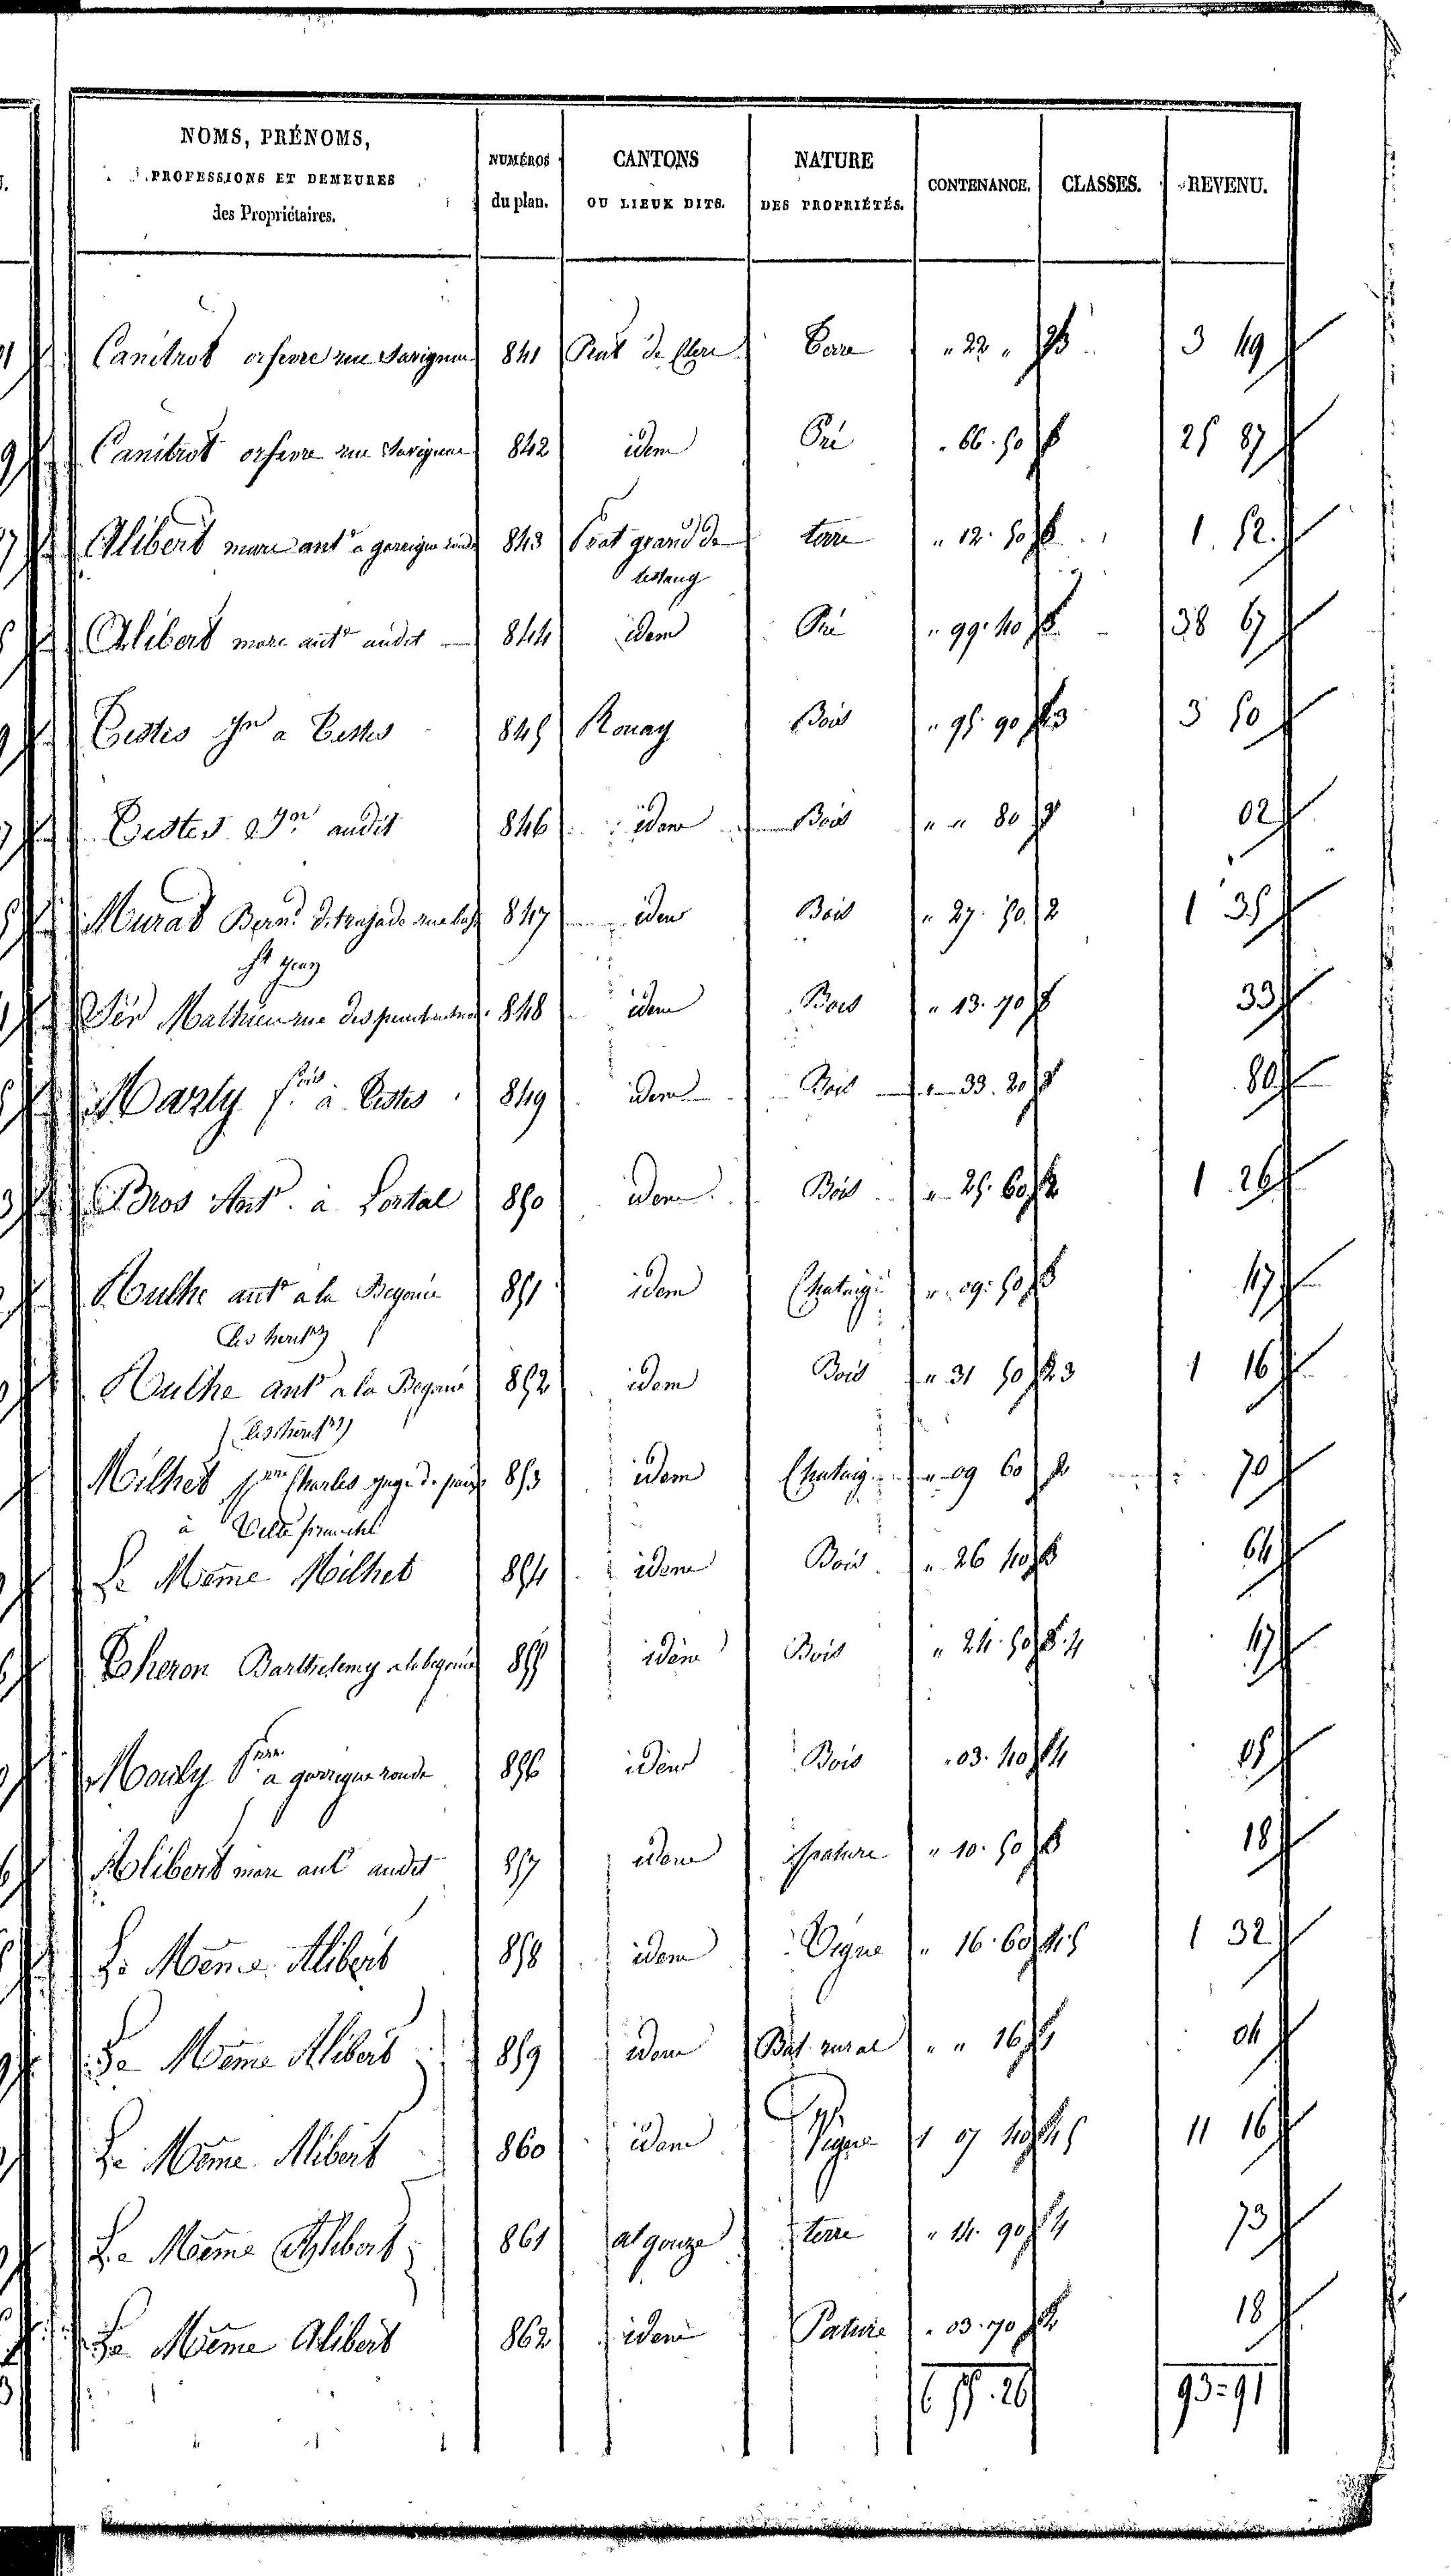 NOMS, PRÉNOMS,
PROFESSIONS ET DEMEURES
des Propriétaires.
NUMÉROS
du plan.
CANTONS
OU LIEUX DITS.
NATURE
DES PROPRIÉTÉS.
CONTENANCE.
CLASSES.
REVENU.
Canitrot orfevre rue Savignac 841 de Terre " 22 " 3 49
Canitrot orfevre rue Savignac 842 idem Pré " 66. 50 25 87
Alibert marc antne a garrigue ronde 843 Prat grand de terre " 12. 50 1. 52.
lestang
Alibert marc antne audit 844 idem Pré " 99. 40 38 67
Testes jn a Testes 845 Rouay Bois " 95. 90 3 50
Testes audit 846 idem Bois " " 80 02
Murat Bernd 847 idem Bois " 27. 50. 2 1 35
Mathieu rue des 848 idem Bois " 13. 70 33
Marty fcois à Testes 849 idem Bois " 33. 20 80
Bros Antne à Lortal 850 idem Bois " 25. 60 1 26
Authe antne a la Begonie 851 idem Chataig " 09. 50 47
les heritrs
Authe antne a la Begonie 852 idem Bois " 31 50 1 16
les heritrs
Milhet Charles juge de paix 853 idem Chataig " 09 60 70
à Villefranche
Le Même Milhet 854 idem Bois " 26 40 64
Theron Barthelemy a la begonie 855 idem Bois " 24. 50 47
Mouly a garrigue ronde 856 idem Bois " 03. 40 05
Alibert marc ant audit 857 idem pature " 10. 50 18
Le Même Alibert 858 idem Vigne " 16. 60 1 32
Le Même Alibert 859 idem Bat. rural " " 16 04
Le Même Alibert 860 idem Vigne 1 07 40 11 16
Le Même Alibert 861 al gouze terre " 14. 90 73
Le Même Alibert 862 idem Pature " 03. 70 18
6 55. 26 93=91